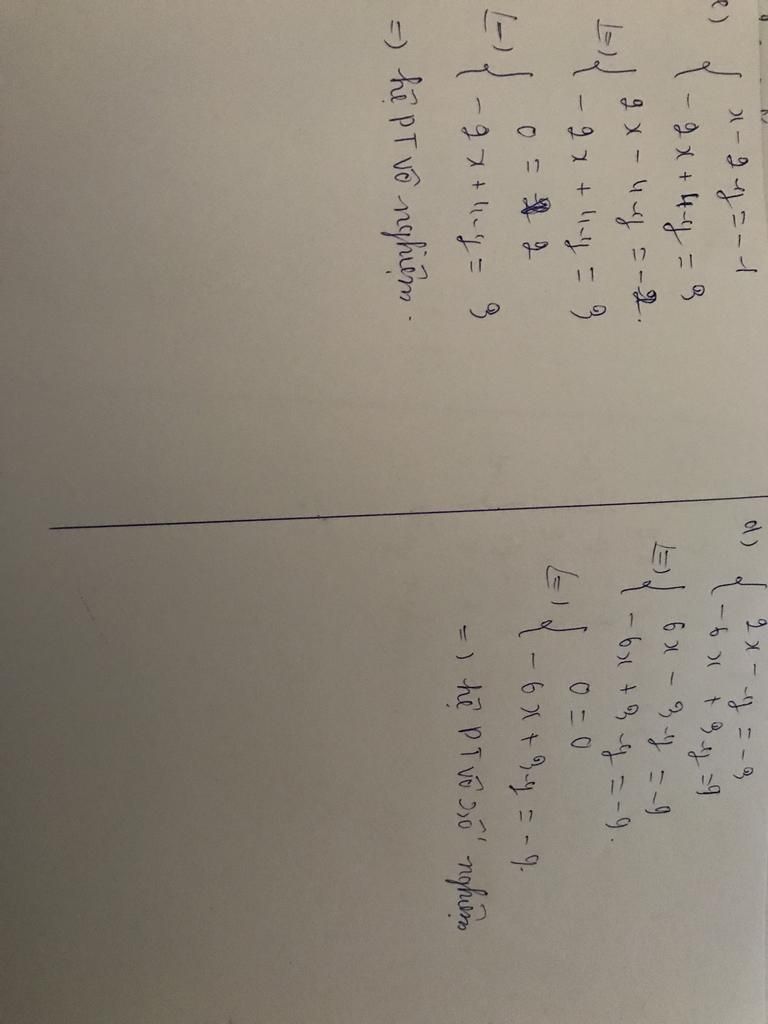 c) { x - 2y = -1
- 2x + 4y = 3
<=> { 2x - 4y = -2.
- 2x + 4y = 3
<=> { 0 = 2
- 2x + 4y = 3
=> hệ PT vô nghiệm.
d) { 2x - y = -3
- 6x + 3y = 9
<=> { 6x - 3y = -9
- 6x + 3y = -9.
<=> { 0 = 0
- 6x + 3y = -9.
=> hệ PT vô số nghiệm